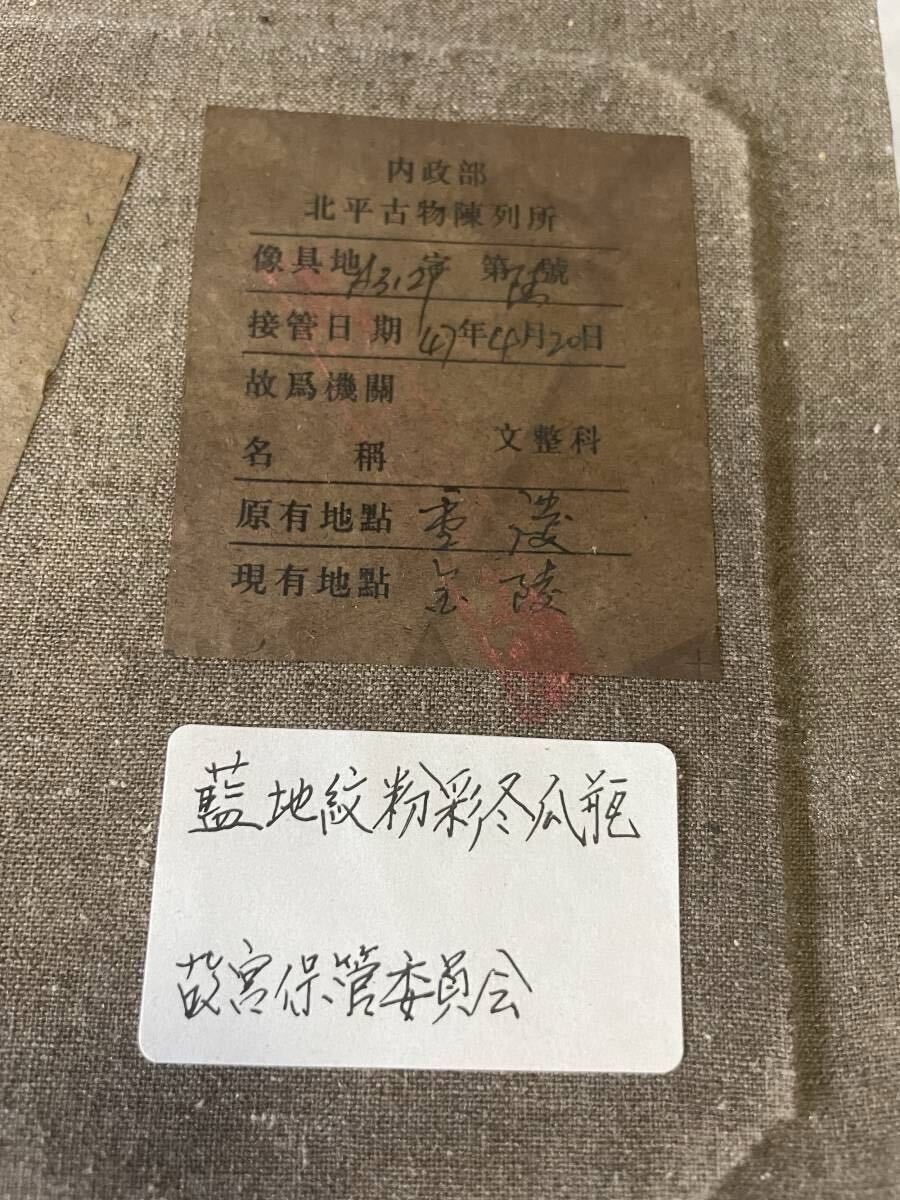 内政部
北平古物陳列所
像具地A3,29字第陸號
接管日期47年4月20日
故爲機關
文整科
名稱
原有地點
現有地點 金陵
藍地紋粉彩冬瓜瓶
故宮保管委員会